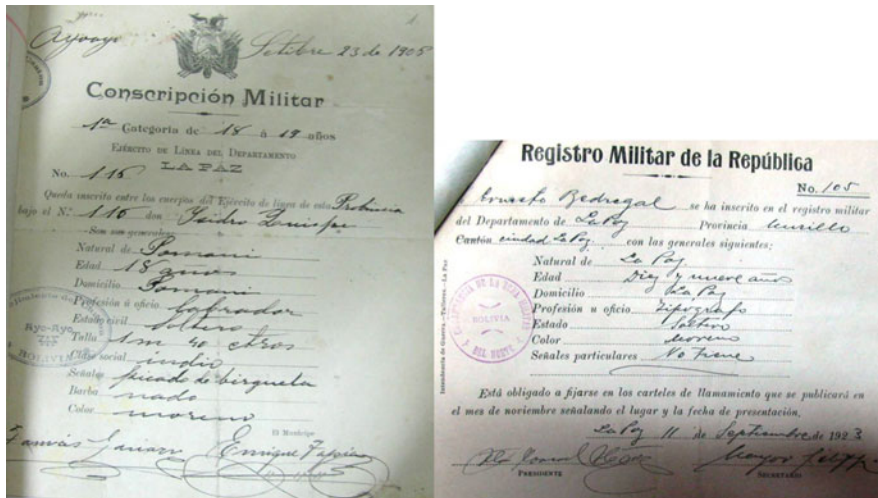 Ayoayo Setibre 23 de 1905
Conscripción Militar
1ª Categoria de 18 á 19 años
EJÉRCITO DE LÍNEA DEL DEPARTAMENTO
No. 116 LA PAZ
Queda inscrito entre los cuerpos del Ejército de línea de esta Probincia
bajo el N.º 116 don Ysidro Quispe
Son sus generales:
Natural de Pomani
Edad 18 años
Domicilio Pomani
Profesión ú oficio labrador
Estado civil soltero
Talla 1m 40 ctros
Clase social indio
Señales picado de birguela
Barba nada
Color moreno
El Munícipe
Ayo-Ayo
BOLIVIA
Registro Militar de la República
No. 105
Ernesto Bedregal se ha inscrito en el registro militar
del Departamento de La Paz Provincia Murillo
Cantón ciudad La Paz con las generales siguientes:
Natural de La Paz
Edad Diez y nueve años
Domicilio La Paz
Profesión u oficio Tipógrafo
Estado Soltero
Color Moreno
Señales particulares No tiene
Está obligado a fijarse en los carteles de llamamiento que se publicará en
el mes de noviembre señalando el lugar y la fecha de presentación,
La Paz 11 de Septiembre de 1923
PRESIDENTE SECRETARIO
Intendencia de Guerra.—Talleres.—La Paz
BOLIVIA
DEL NORTE